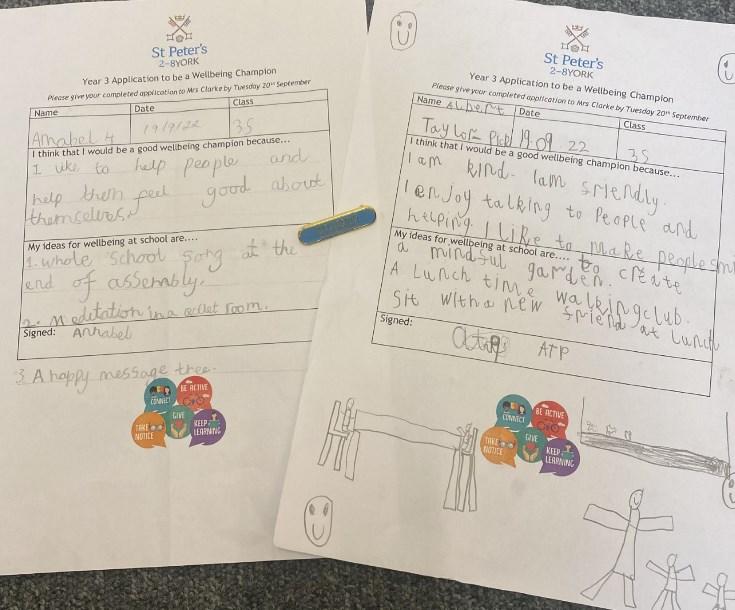 St Peter's
2–8YORK
Year 3 Application to be a Wellbeing Champion
Please give your completed application to Mrs Clarke by Tuesday 20th September
Name
Date
Class
Annabel H
19/9/22
3S
I think that I would be a good wellbeing champion because...
I like to help people and
help them feel good about
themselves.
My ideas for wellbeing at school are....
1. whole school song at the
end of assembly.
2. Meditation in a quiet room.
Signed:
Annabel
3 A happy message tree.
CONNECT
BE ACTIVE
TAKE NOTICE
GIVE
KEEP LEARNING
St Peter's
2–8YORK
Year 3 Application to be a Wellbeing Champion
Please give your completed application to Mrs Clarke by Tuesday 20th September
Name Albert
Date
Class
Taylor
19.09.22
3S
I think that I would be a good wellbeing champion because...
I am kind. I am friendly.
I enjoy talking to People and
helping. I Like to make people smi
My ideas for wellbeing at school are.... to create
a mindful garden.
A Lunch time walking club.
Sit with a new friend at Lunch
Signed:
ATP
CONNECT
BE ACTIVE
TAKE NOTICE
GIVE
KEEP LEARNING